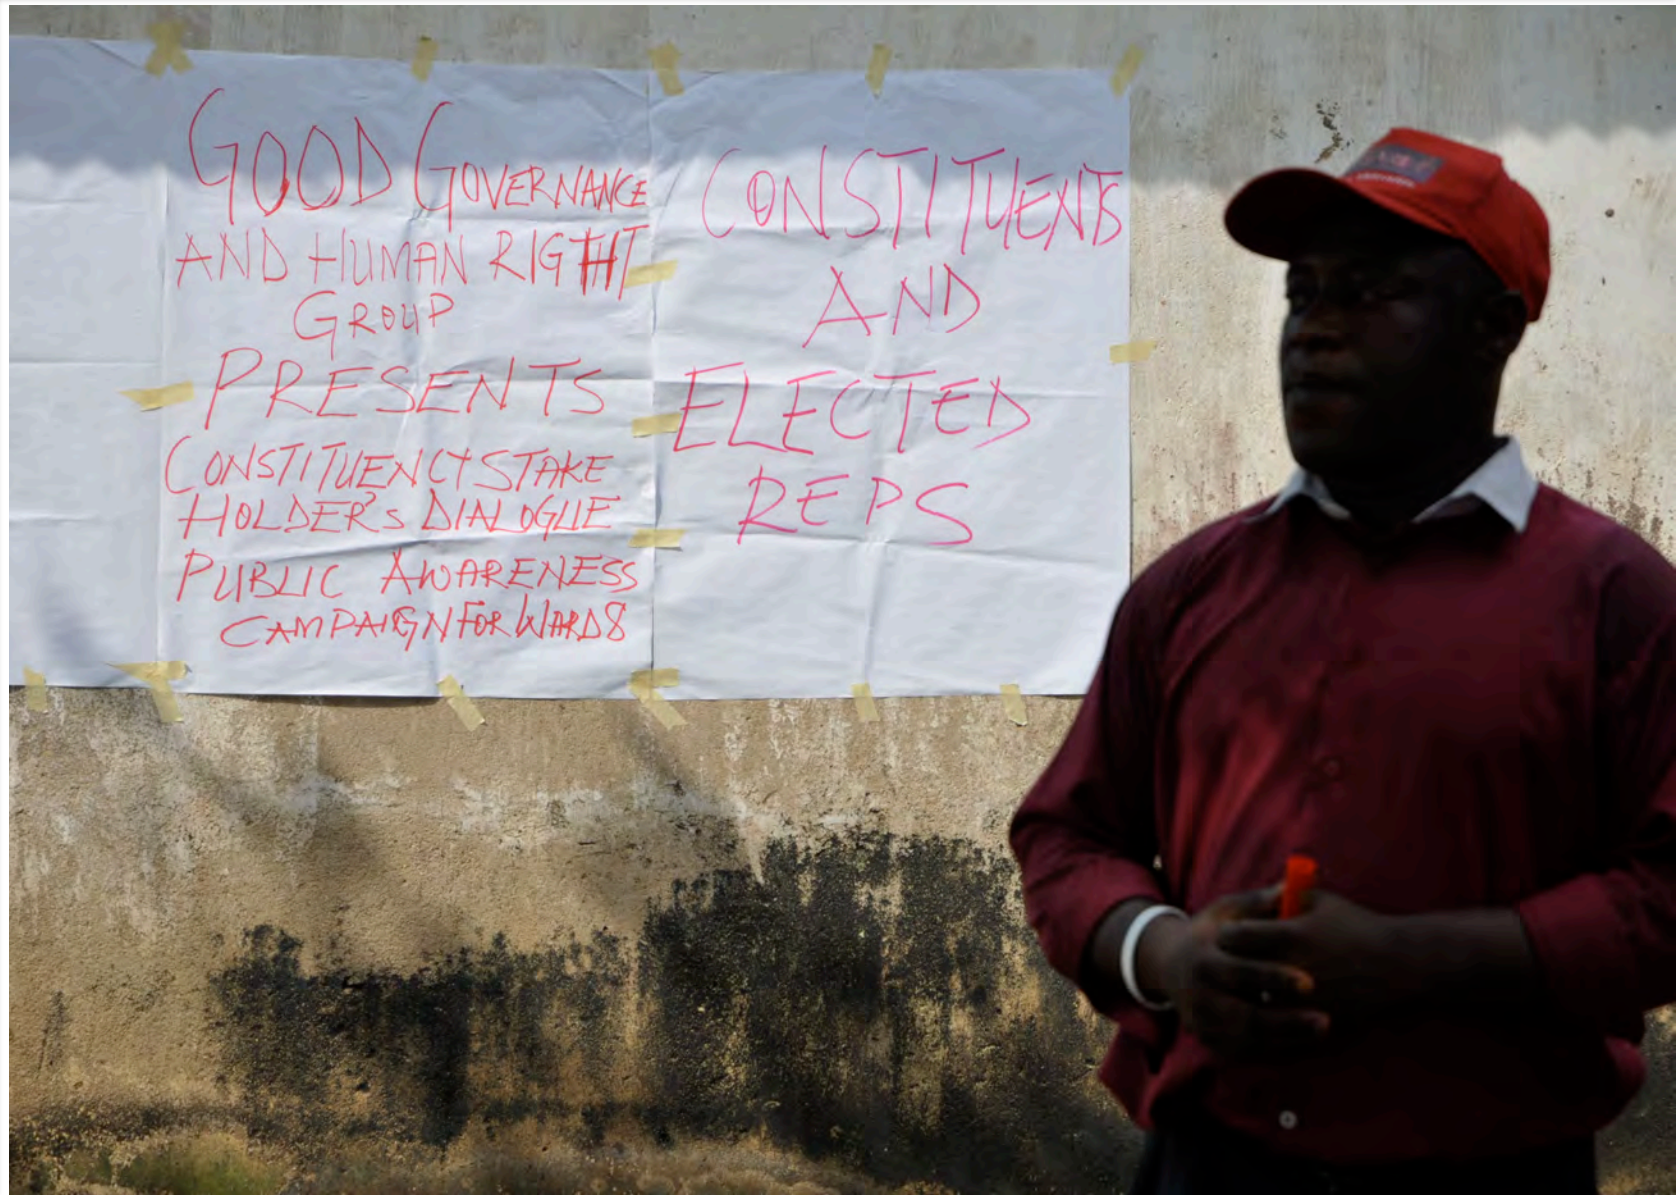 GOOD GOVERNANCE
AND HUMAN RIGHT
GROUP
PRESENTS
CONSTITUENCY STAKE
HOLDER'S DIALOGUE
PUBLIC AWARENESS
CAMPAIGN FOR WARD 8
CONSTITUENTS
AND
ELECTED
REPS